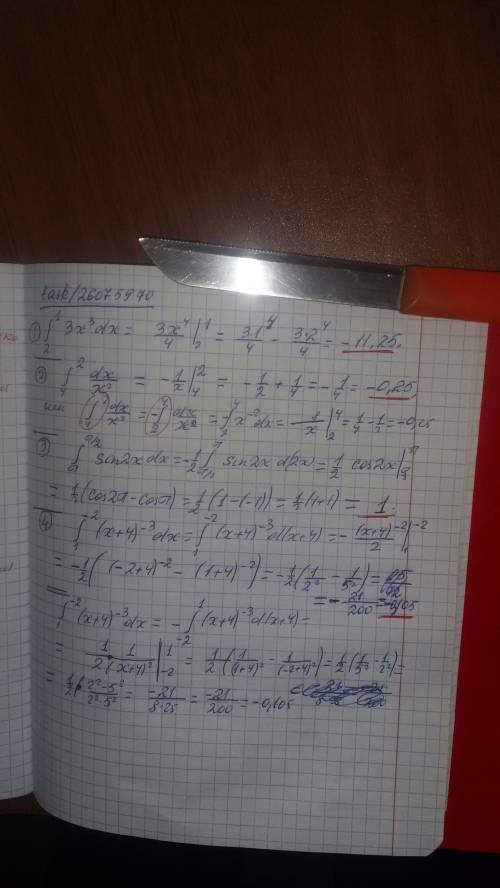 task/26075970
① ∫₂¹ 3x³dx = 3x⁴/4 |₂¹ = 3·1⁴/4 − 3·2⁴/4 = −11,25.
② ∫₄² dx/x² = −1/x |₄² = −1/2 + 1/4 = −1/4 = −0,25
или ∫₄² dx/x² = −∫₂⁴ dx/x² = −∫₂⁴ x⁻²dx = 1/x |₂⁴ = 1/4 − 1/2 = −0,25
③ sin2x dx = −1/2 ∫ sin2x d2x = 1/2 cos2x |
= 1/2 (cos2π − cosπ) = 1/2 (1−(−1)) = 1/2 (1+1) = 1.
④ ∫₁⁻² (x+4)⁻³dx = ∫₁⁻² (x+4)⁻³d(x+4) = −(x+4)⁻²/2 |₁⁻²
= −1/2 ((−2+4)⁻² − (1+4)⁻²) = −1/2 (1/2² − 1/5²) =
= −21/200 =
∫₁⁻² (x+4)⁻³dx = −∫₋₂¹ (x+4)⁻³d(x+4) =
= 1/2 · 1/(x+4)² |₋₂¹ = 1/2 (1/(1+4)² − 1/(−2+4)²) = 1/2 (1/5² − 1/2²) =
= 1/2 · 2²−5²/2²·5² = −21/8·25 = −21/200 = −0,105